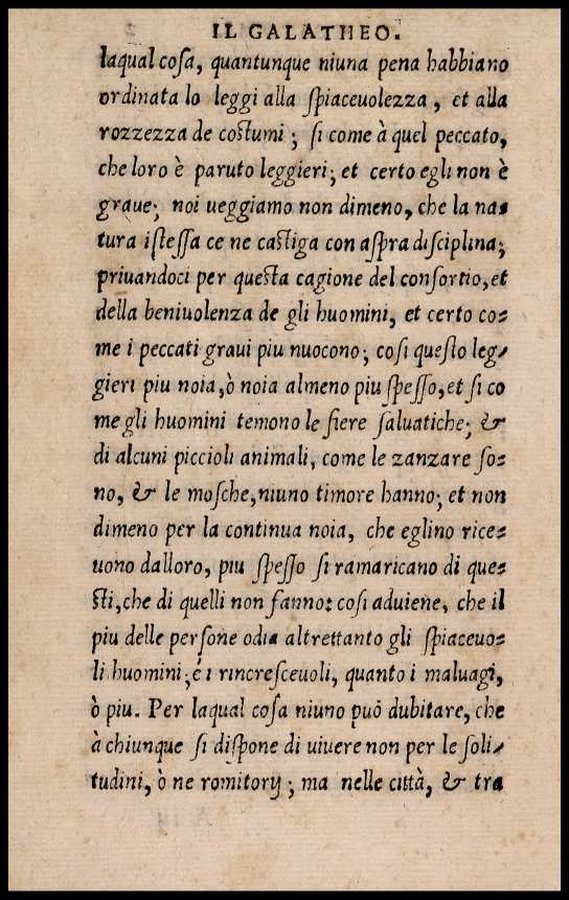 IL GALATHEO.
laqual coſa, quantunque niuna pena habbiano
ordinata lo leggi alla ſpiaceuolezza, et alla
rozzezza de coſtumi; ſi come à quel peccato,
che loro è paruto leggieri; et certo egli non è
graue; noi ueggiamo non dimeno, che la na⸗
tura iſteſſa ce ne caſtiga con aſpra diſciplina;
priuandoci per queſta cagione del conſortio, et
della beniuolenza de gli huomini, et certo co⸗
me i peccati graui piu nuocono; coſi queſto leg⸗
gieri piu noia, ò noia almeno piu ſpeſſo, et ſi co
me gli huomini temono le fiere ſaluatiche; &
di alcuni piccioli animali, come le zanzare ſo⸗
no, & le moſche, niuno timore hanno; et non
dimeno per la continua noia, che eglino rice⸗
uono dalloro, piu ſpeſſo ſi ramaricano di que⸗
ſti, che di quelli non fanno: coſi aduiene, che il
piu delle perſone odia altrettanto gli ſpiaceuo⸗
li huomini; é i rincreſceuoli, quanto i maluagi,
ò piu. Per laqual coſa niuno può dubitare, che
à chiunque ſi diſpone di uiuere non per le ſoli⸗
tudini, ò ne romitorij; ma nelle città, & tra